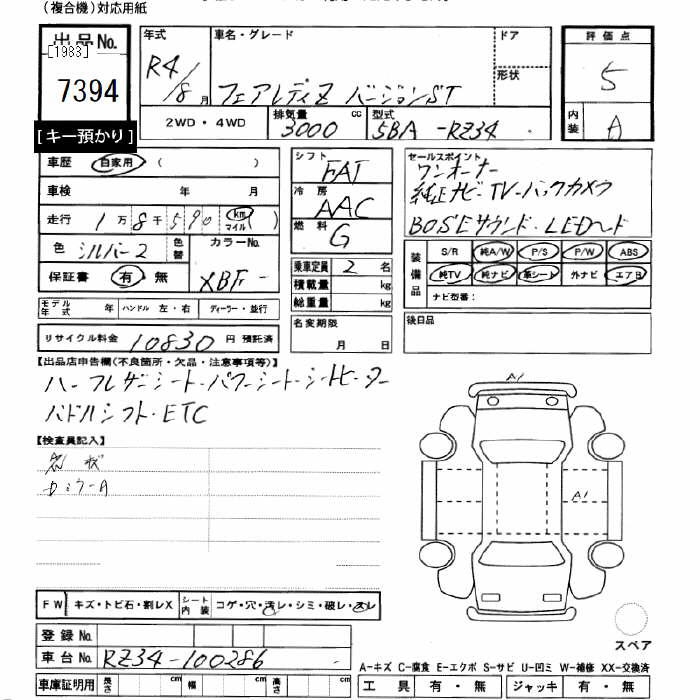 (複合機)対応用紙
出品No. 年式 車名・グレード ドア 評価点
[1983] R4/8月 フェアレディZ バージョンST 形状 5
7394
2WD・4WD 排気量 3000 cc 型式 5BA-RZ34 内装 A
[キー預かり]
車歴 自家用 ( ) シフト FAT セールスポイント ワンオーナー
車検 年 月 冷房 AAC 純正ナビ-TV-バックカメラ
走行 1万8千590 km マイル 燃料 G BOSEサウンド・LEDヘッド
色 シルバー2 色替 カラーNo. XBF- 装備品 S/R 純A/W P/S P/W ABS
保証書 有・無 乗車定員 2名 純TV 純ナビ 革シート 外ナビ エアB
積載量 kg ナビ型番:
モデル年式 年 ハンドル 左・右 ディーラー・並行 総重量 kg
リサイクル料金 10830 円 預託済 名変期限 月 日 後日品
【出品店申告欄(不良箇所・欠品・注意事項等)】
ハーフレザーシート・パワーシート・シートヒーター
パドルシフト・ETC
A1
【検査員記入】
A1
FW キズ・トビ石・割レX シート内装 コゲ・穴・汚レ・シミ・破レ・スレ
登録No.
車台No. RZ34-100286 スペア
A-キズ C-腐食 E-エクボ S-サビ U-凹ミ W-補修 XX-交換済
車庫証明用 長さ cm 幅 cm 高さ cm 工具 有・無 ジャッキ 有・無